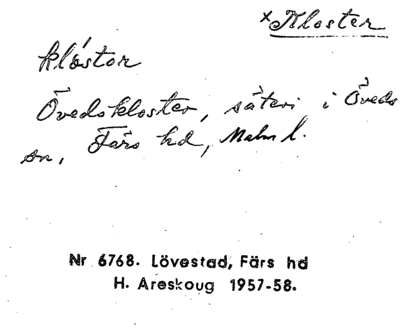 ×Kloster
klåstor
Övedskloster, säteri i Öveds
sn, Färs hd, Malm l.
Nr 6768. Lövestad, Färs hd
H. Areskoug 1957-58.